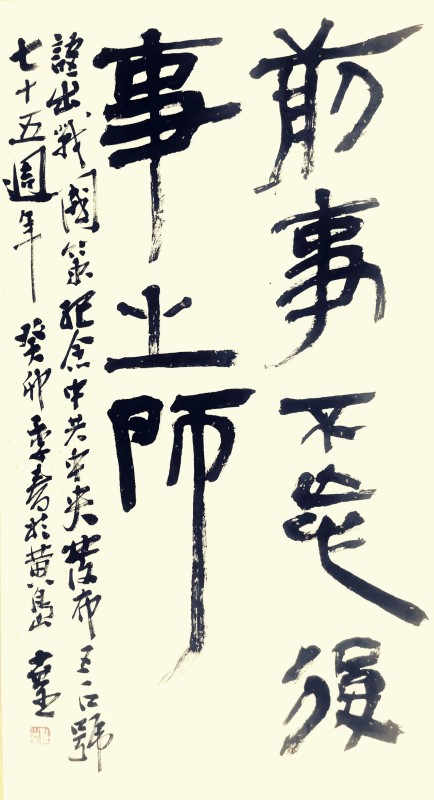 前事不忘後
事之師
語出戰國策紀念中共中央發布五一口號
七十五週年 癸卯季春於黃島